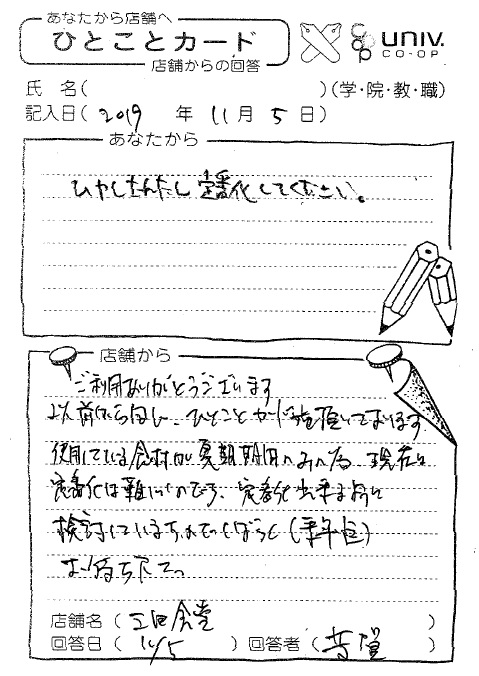 あなたから店舗へ
ひとことカード
店舗からの回答
UNIV.
CO-OP
氏 名( )(学・院・教・職)
記入日( 2019 年 11 月 5 日)
あなたから
ひやしたんたん定番化してください。
店舗から
ご利用ありがとうございます
以前からひとことカードを頂いております
使用している食材が夏期期間のみの為 現在は
定番化は難しいのですが、定番化出来ますように
検討している しばらく(来年迄)
お待ち下さい
店舗名( 食堂 )
回答日( 11/5 ) 回答者( )